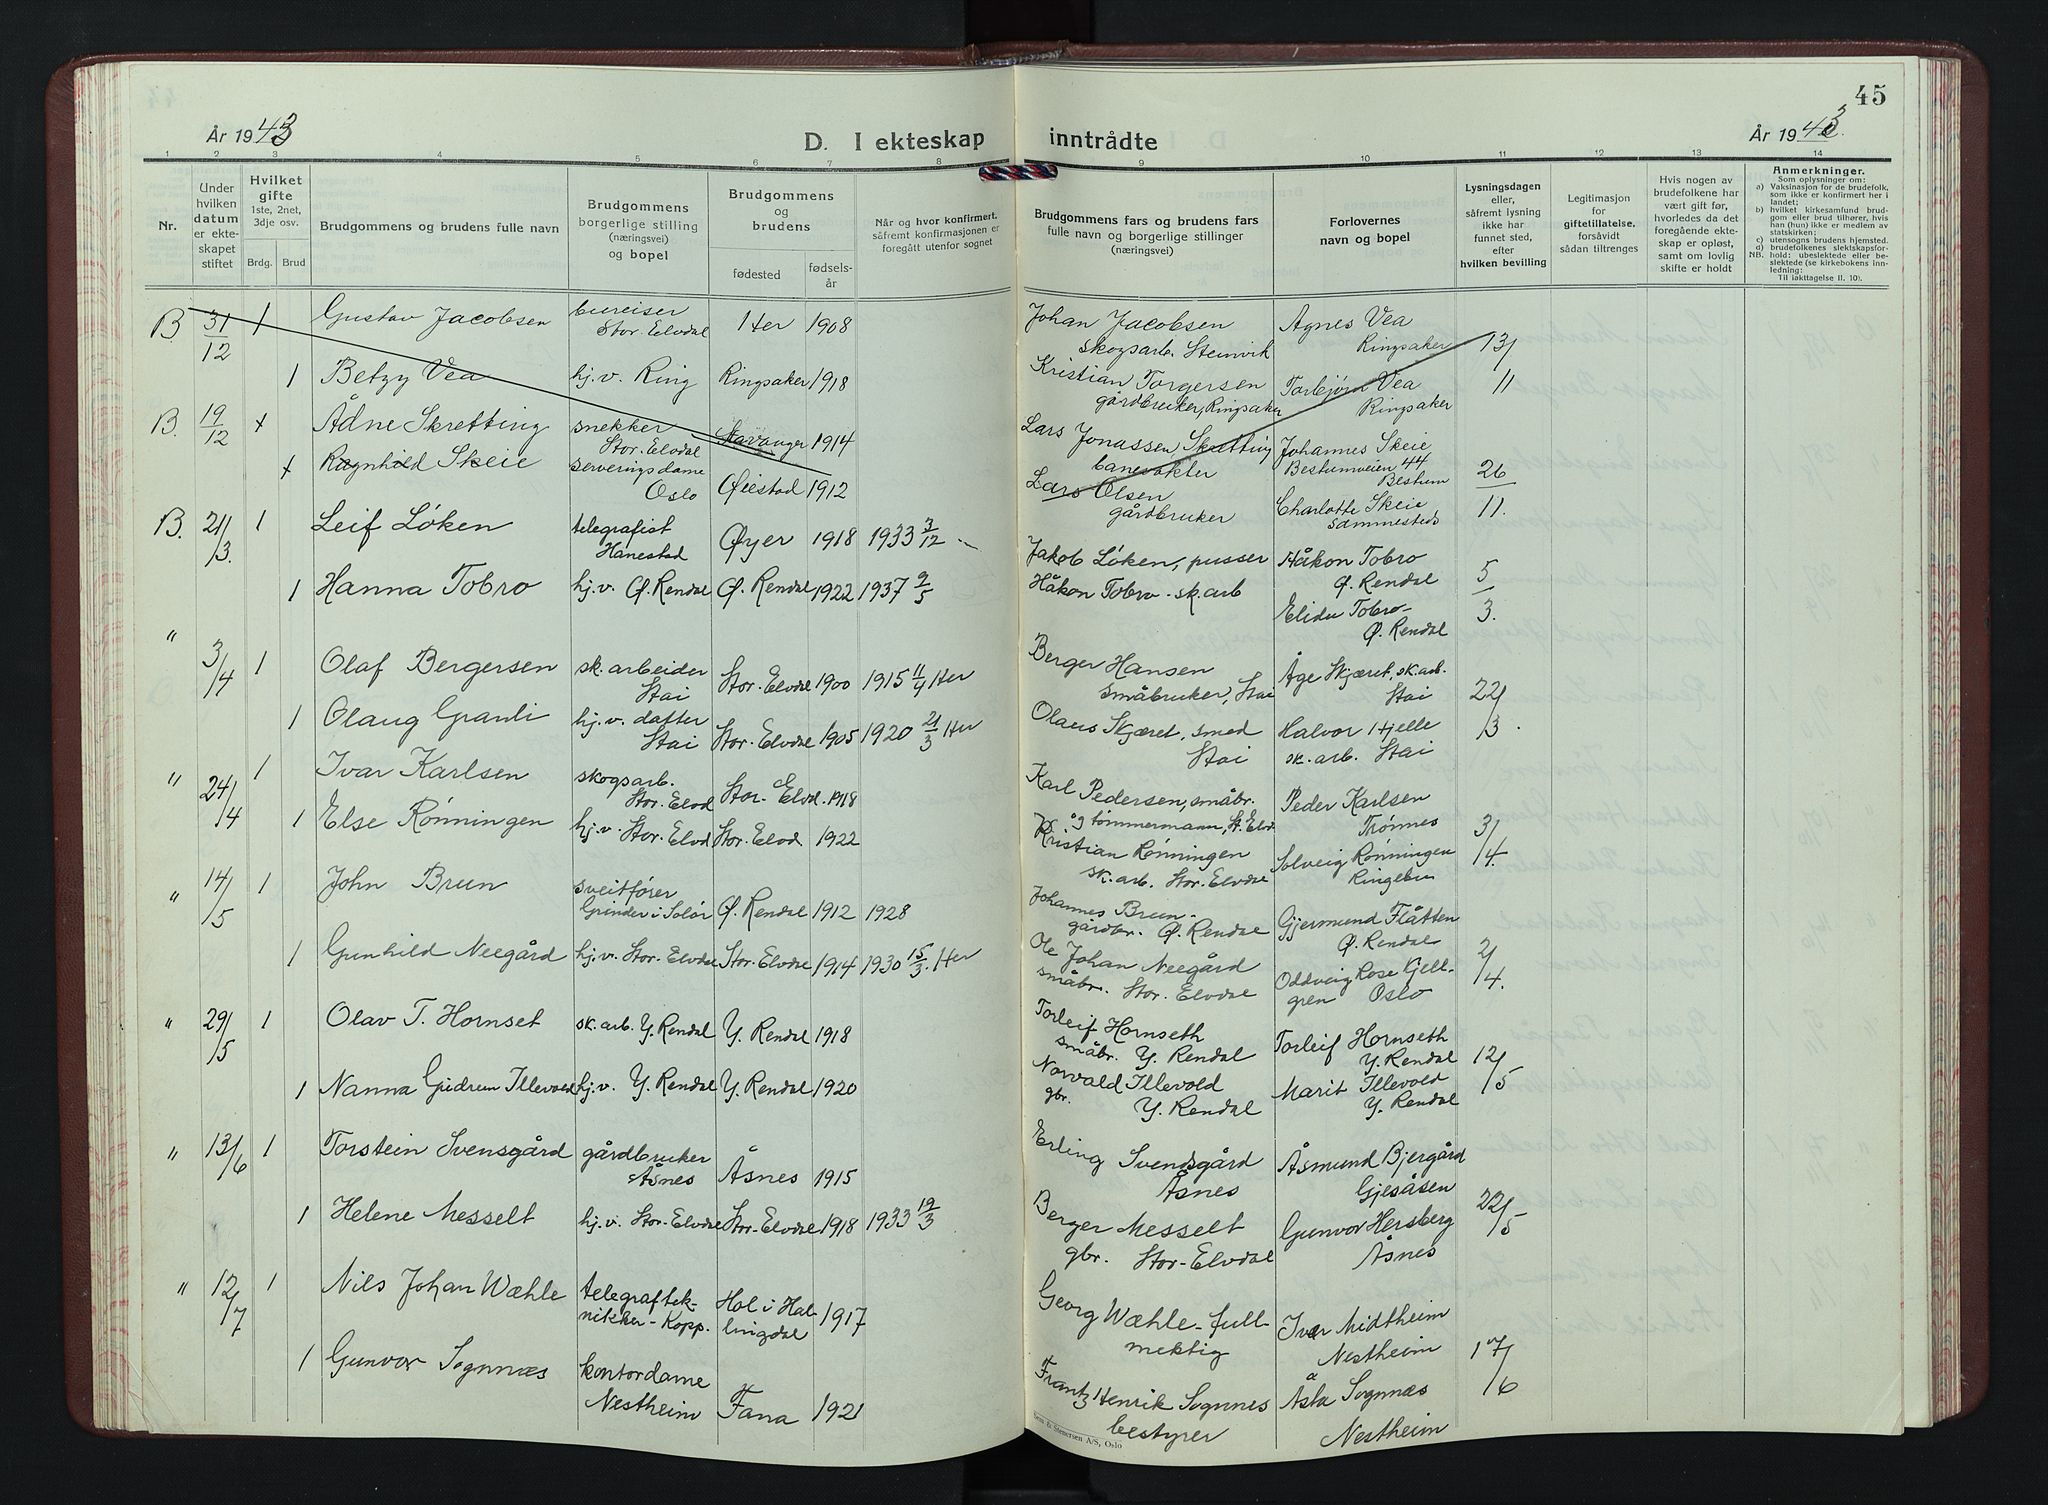 45
År 1943
D. I ekteskap inntrådte
År 1943.
1 2 3 4 5 6 7 8 9 10 11 12 13 14
Nr.
Under hvilken datum er ekteskapet stiftet
Hvilket gifte
1ste, 2net, 3dje osv.
Brdg. Brud
Brudgommens og brudens fulle navn
Brudgommens borgerlige stilling (næringsvei) og bopel
Brudgommens og brudens
fødested
fødselsår
Når og hvor konfirmert, såfremt konfirmasjonen er foregått utenfor sognet
Brudgommens fars og brudens fars fulle navn og borgerlige stillinger (næringsvei)
Forlovernes navn og bopel
Lysningsdagen eller, såfremt lysning ikke har funnet sted, efter hvilken bevilling
Legitimasjon for giftetillatelse, forsåvidt sådan tiltrenges
Hvis nogen av brudefolkene har vært gift før, hvorledes da det foregående ekteskap er opløst, samt om lovlig skifte er holdt
Anmerkninger.
Som oplysninger om:
a) Vaksinasjon for de brudefolk, som ikke er konfirmert her i landet;
b) hvilket kirkesamfund brudgom eller brud tilhører, hvis han (hun) ikke er medlem av statskirken;
c) utensogns brudens hjemsted.
d) brudefolkenes slektskapsforhold: ubeslektede eller beslektede (se kirkebokens innledning:
NB.
Til iakttagelse II. 10).
B 31/12 1 Gustav Jacobsen bureiser Stor. Elvdal Her 1908 Johan Jacobsen skogsarb. Steinvik Agnes Vea Ringsaker 13/11
1 Betzy Vea hj.v. Ring Ringsaker 1918 Kristian Torgersen gårdbruker, Ringsaker Torbjørn Vea Ringsaker
B. 19/12 + Ådne Skretting snekker Stor. Elvdal Stavanger 1914 Lars Jonassen Skretting banevokter Johannes Skeie Bestumveien 44 Bestum 26/11.
+ Ragnhild Skeie serveringsdame Oslo Øiestad 1912 Lars Olsen gårdbruker Charlotte Skeie sammesteds
B. 21/3. 1 Leif Løken telegrafist Hanestad Øyer 1918 1933 3/12 Jakob Løken, pusser Håkon Tobro Ø. Rendal 5/3.
1 Hanna Tobro hj.v. Ø. Rendal Ø. Rendal 1922 1937 9/5 Håkon Tobro - sk.arb Elida Tobro - Ø. Rendal
" 3/4 1 Olaf Bergersen sk.arbeider Stai Stor. Elvdal 1900 1915 11/4 Her Berger Hansen småbruker, Stai Åge Skjæret, sk.arb. Stai 22/3.
1 Olaug Granli hj.v. datter Stai Stor. Elvdal 1905 1920 21/3 Her Olaus Skjæret, smed Stai Halvor Hjelle sk. arb. Stai
" 24/4 1 Ivar Karlsen skogsarb. Stor. Elvd Stor. Elvd. 1918 Karl Pedersen, småbr. og tømmermann, St. Elvd Peder Karlsen Trønnes 3/4.
1 Else Rønningen hj.v. Stor. Elvd Stor. Elvd 1922 Kristian Rønningen sk. arb. Stor. Elvdal Solveig Rønningen Ringebu
" 14/5 1 John Brun sveitfører Grinder i Solør Ø. Rendal 1912 1928 Johannes Brun - gårdbr. Ø. Rendal Gjermund Flåtten Ø. Rendal 2/4.
1 Gunhild Neegård hj.v. Stor. Elvdal Stor. Elvdal 1914 1930 15/3. Her Ole Johan Neegård småbr. Stor. Elvdal Oddveig Rose Kjellgren Oslo
" 29/5 1 Olav T. Hornset sk. arb. Y. Rendal Y. Rendal 1918 Torleif Hornseth småbr. Y. Rendal Torleif Hornseth Y. Rendal 12/5
1 Nanna Gudrun Illevold hj.v. Y. Rendal Y. Rendal 1920 Norvald Illevold gbr. Y. Rendal Marit Illevold Y. Rendal
" 13/6 1 Torstein Svensgård gårdbruker Åsnes Åsnes 1915 Erling Svendsgård Åsnes Åsmund Bjergård Gjesåsen 22/5
1 Helene Messelt hj.v. Stor-Elvdal Stor-Elvdal 1918 1933 19/3 Berger Messelt gbr. Stor-Elvdal Gunvor Hersberg Åsnes
" 12/7 1 Nils Johan Wæhle telegraftek- nikker - Kopp. Hol i Hal- lingdal 1917 Georg Wæhle - full- mektig Ivar Midtheim Nestheim 17/6
1 Gunvor Sognnæs kontordame Nestheim Fana 1921 Frantz Henrik Sognnes bestyrer Åsta Sognnæs Nestheim
Sem & Stenersen A/S, Oslo